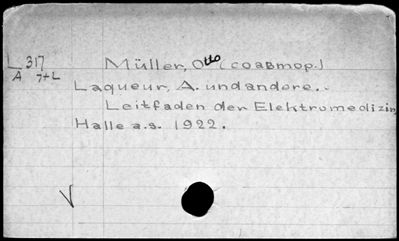 L 317 Müller, Otto (соавтор.)
A 7+L
Laqueur, A. und andere..
Leitfaden der Elektromedizin
Halle a.s. 1922.